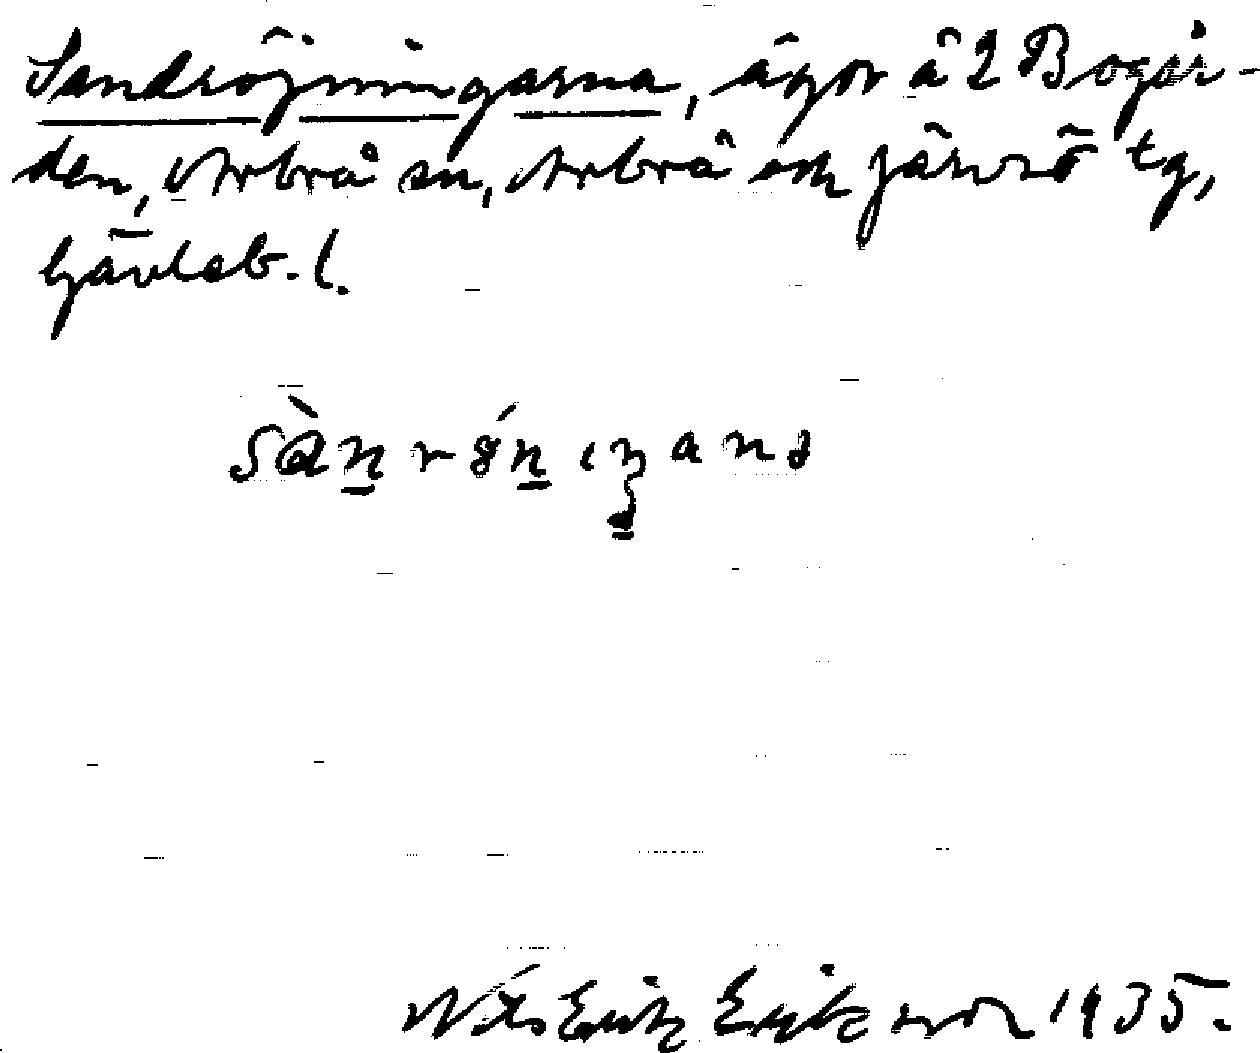 Sandröjningarna, ägor å 2 Bogår-
den, Arbrå sn, Arbrå och Järvsö tg,
Gävleb. l.
sàn̲rǿn̲ıŋana
Nils Erik Eriksson 1935.